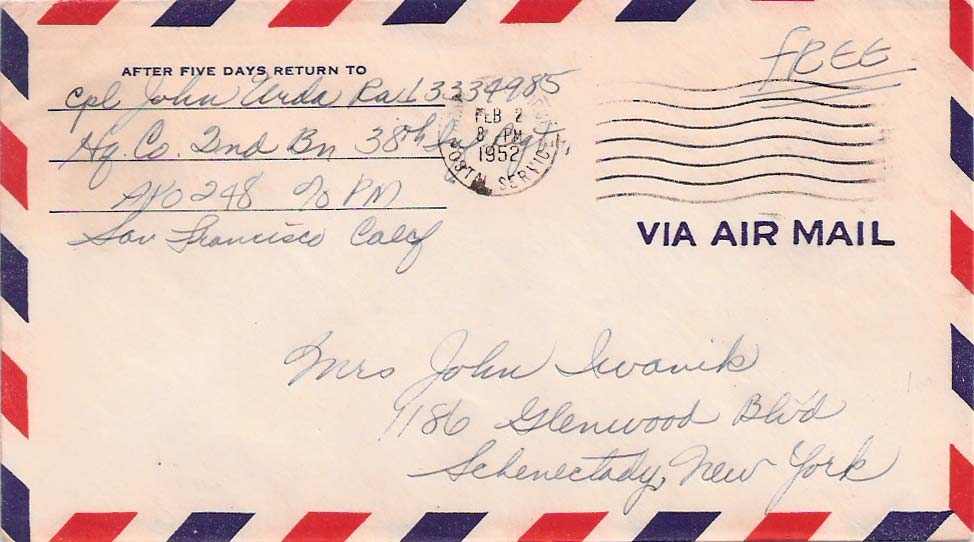 FREE
AFTER FIVE DAYS RETURN TO
Cpl John Urda Ra 13334985
Hq. Co. 2nd Bn 38th Inf Regt
APO 248 c/o PM
San Francisco Calif
FEB 2
8 PM
1952
POSTAL SERVICE
VIA AIR MAIL
Mrs John Iwanik
1186 Glenwood Blvd
Schenectady, New York